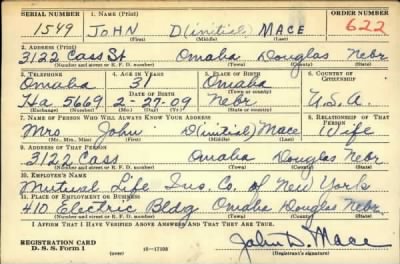 SERIAL NUMBER 1. NAME (Print) ORDER NUMBER
1549 JOHN D(initial) MACE 622
(First) (Middle) (Last)
2. ADDRESS (Print)
3122 Cass St Omaha Douglas Nebr
(Number and street or R. F. D. number) (Town) (County) (State)
3. TELEPHONE 4. AGE IN YEARS 5. PLACE OF BIRTH 6. COUNTRY OF CITIZENSHIP
Omaha 31 Omaha
DATE OF BIRTH (Town or county)
Ha 5669 2-27-09 Nebr U.S.A.
(Exchange) (Number) (Mo.) (Day) (Yr.) (State or country)
7. NAME OF PERSON WHO WILL ALWAYS KNOW YOUR ADDRESS 8. RELATIONSHIP OF THAT PERSON
Mrs John D(initial) Mace Wife
(Mr., Mrs., Miss) (First) (Middle) (Last)
9. ADDRESS OF THAT PERSON
3122 Cass Omaha Douglas Nebr
(Number and street or R. F. D. number) (Town) (County) (State)
10. EMPLOYER'S NAME
Mutual Life Ins. Co. of New York
11. PLACE OF EMPLOYMENT OR BUSINESS
410 Electric Bldg Omaha Douglas Nebr.
(Number and street or R. F. D. number) (Town) (County) (State)
I AFFIRM THAT I HAVE VERIFIED ABOVE ANSWERS AND THAT THEY ARE TRUE.
REGISTRATION CARD
D. S. S. Form 1 (over) 16—17105 John D. Mace
(Registrant's signature)